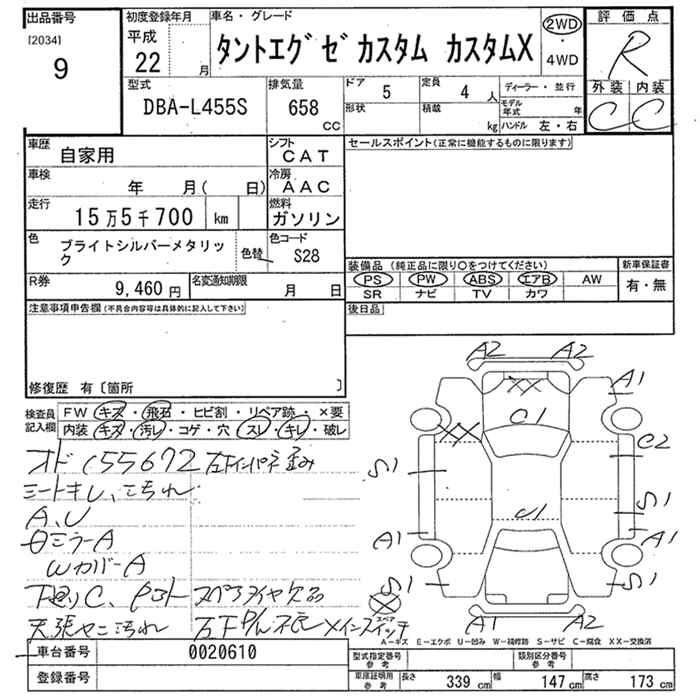 出品番号
[2034]
9
初度登録年月
平成
22 月
車名・グレード
タントエグゼ カスタム カスタムX
2WD
・
4WD
評価点
R
外装 内装
C C
型式
DBA-L455S
排気量
658
CC
ドア 5
形状
定員 4 人
積載 kg
ディーラー・並行
モデル年式 年
ハンドル 左・右
車歴 自家用
シフト CAT
車検 年 月( 日)
冷房 AAC
走行 15万5千700 km
燃料 ガソリン
色 ブライトシルバーメタリック
色替
色コード S28
R券 9,460 円
名変通知期限 月 日
セールスポイント(正常に機能するものに限ります)
装備品(純正品に限り○をつけてください)
新車保証書
PS PW ABS エアB AW
SR ナビ TV カワ
有・無
後日品
注意事項申告欄(不具合内容等は具体的に記入して下さい)
修復歴 有〔箇所 〕
検査員記入欄
FW キズ・飛石・ヒビ割・リペア跡・×要
内装 キズ・汚レ・コゲ・穴・スレ・キレ・破レ
オド 155672 左下インパネ歪み
シートキレ、こちれ
A、U
日ミラーA
WカバーA
下廻りC、 スペアタイヤ欠品
天張ヤニ汚れ メインスイッチ
A2 A2
A1
C1
C2
S1
S1
A1
U1
A1
S1
S1
スペア
A1 A2
A-キズ E-エクボ U-凹み W-補修跡 S-サビ C-腐食 XX-交換済
車台番号 0020610
登録番号
型式指定番号
参考
類別区分番号
参考
車庫証明用
参考
長さ 339 cm 幅 147 cm 高さ 173 cm